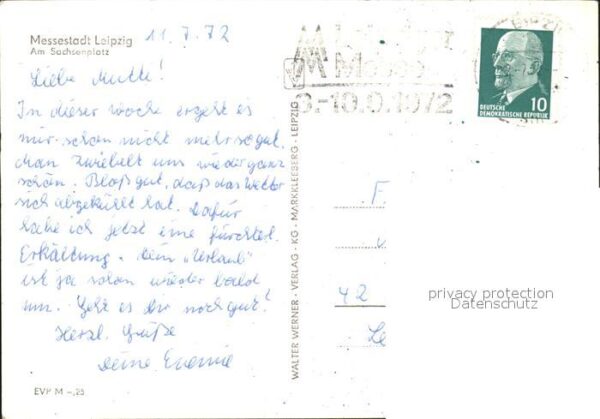 Messestadt Leipzig
Am Sachsenplatz
11.7.72
Liebe Mutti!
In dieser Woche ergeht es
mir schon nicht mehr so gut.
Man zwiebelt uns wieder ganz
schön. Bloß gut, daß das Wetter
sich abgekühlt hat. Dafür
habe ich jetzt eine fürchterl.
Erkältung. Dein "Urlaub"
ist ja schon wieder bald
um. Geht es Dir noch gut?
Herzl. Grüße
Deine
EVP M -,25
WALTER WERNER - VERLAG - KG - MARKKLEEBERG - LEIPZIG
Messe
3.-10.9.1972
10
DEUTSCHE
DEMOKRATISCHE REPUBLIK
F
42
Le
privacy protection
Datenschutz